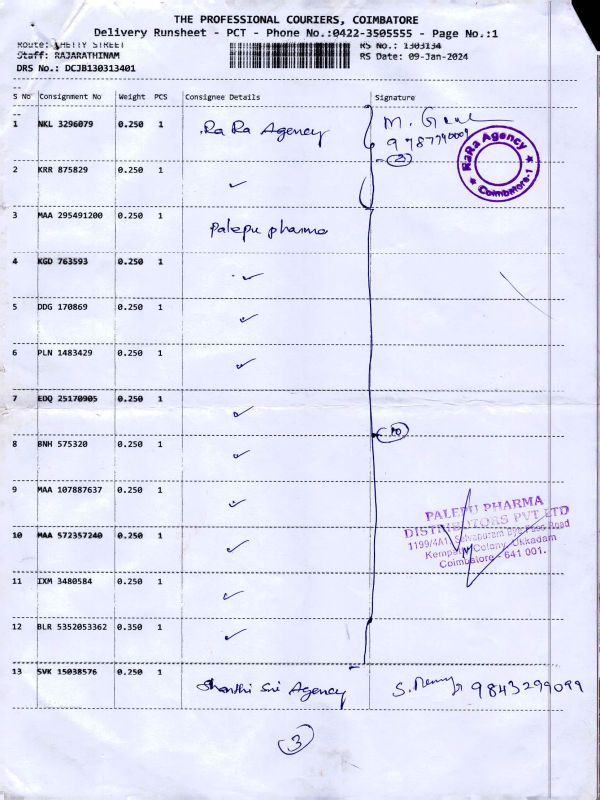 THE PROFESSIONAL COURIERS, COIMBATORE
Delivery Runsheet - PCT - Phone No.:0422-3505555 - Page No.:1
Route: CHETTY STREET RS No.: 1303134
Staff: RAJARATHINAM RS Date: 09-Jan-2024
DRS No.: DCJB130313401
S No Consignment No Weight PCS Consignee Details Signature
1 NKL 3296079 0.250 1 Ra Ra Agency M.
2
RaRa Agency
Coimbatore-1
2 KRR 875829 0.250 1 ✓
3 MAA 295491200 0.250 1 Palepu pharma
4 KGD 763593 0.250 1 ✓
5 DDG 170869 0.250 1 ✓
6 PLN 1483429 0.250 1 ✓
7 EDQ 25170905 0.250 1 ✓
10
8 BNH 575320 0.250 1 ✓
9 MAA 107887637 0.250 1 ✓
10 MAA 572357240 0.250 1 ✓
PALEPU PHARMA
DISTRIBUTORS PVT LTD
1199/4A1, Selvapuram bye Pass Road
Colony, Ukkadam
Coimbatore - 641 001.
11 IXM 3480584 0.250 1 ✓
12 BLR 5352053362 0.350 1 ✓
13 SVK 15038576 0.250 1 Shanthi Sri Agency S. 9843299099
3